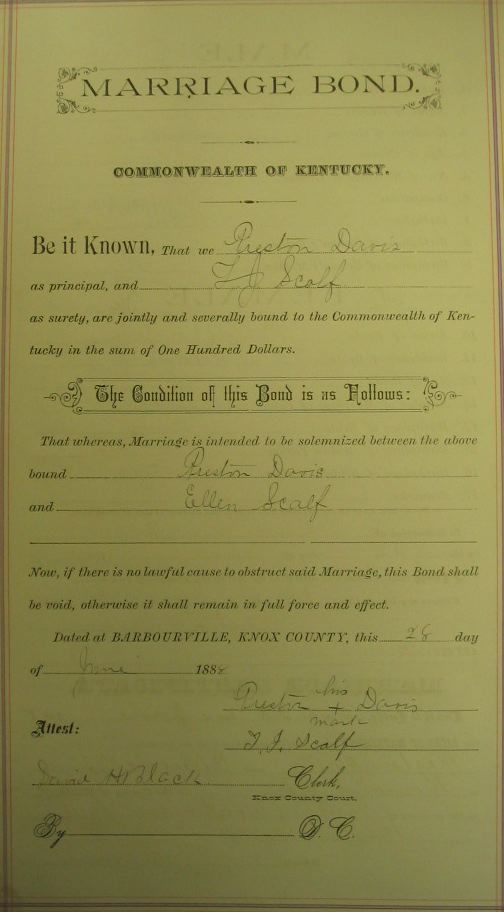 MARRIAGE BOND.
COMMONWEALTH OF KENTUCKY.
Be it Known, That we Preston Davis
as principal, and T J Scalf
as surety, are jointly and severally bound to the Commonwealth of Ken-
tucky in the sum of One Hundred Dollars.
The Condition of this Bond is as Follows:
That whereas, Marriage is intended to be solemnized between the above
bound Preston Davis
and Ellen Scalf
Now, if there is no lawful cause to obstruct said Marriage, this Bond shall
be void, otherwise it shall remain in full force and effect.
Dated at BARBOURVILLE, KNOX COUNTY, this 28 day
of June 188
his
Preston + Davis
mark
Attest:
T. J. Scalf
David H Black Clerk,
Knox County Court.
By D. C.